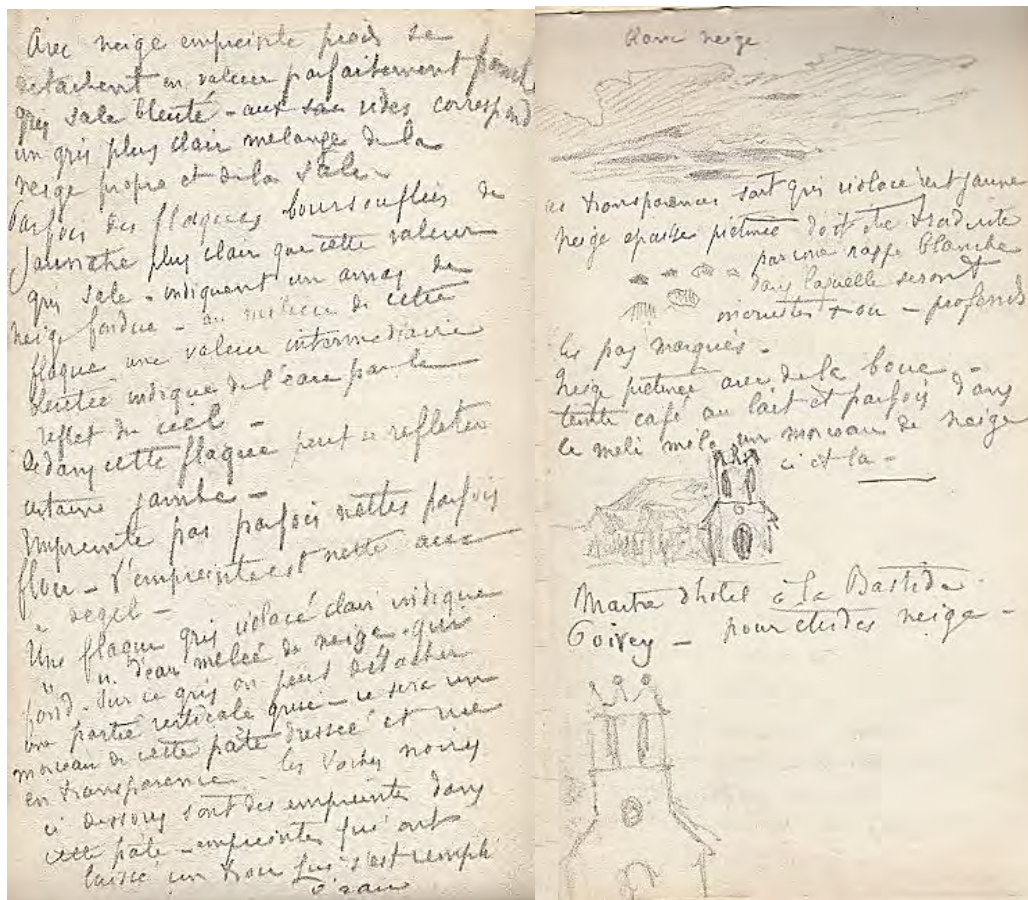 Avec neige empreinte pieds se
détachent en valeur parfaitement
gris sale bleuté - aux correspond
un gris plus clair mélange de la
neige propre et de la sale
Parfois des flaques boursouflées de
Jaunatre plus clair que cette valeur
gris sale - indiquent un amas de
neige fondue - au milieu de cette
flaque une valeur intermédiaire
teintée indique de l'eau par le
reflet du ciel -
dans cette flaque peut se refleter
certaine jambe -
Empreinte pas parfois nettes parfois
floue - l'empreinte est nette avec
degel -
Une flaque gris violacé clair indique
d'eau meleé de neige qui
fond. Sur ce gris on peut détacher
une partie verticale grise - ce sera un
morceau de cette pâte dressée et vue
en transparence - les taches noires
ci dessous sont des empreintes dans
cette pâte - empreintes qui ont
laissé un trou qui s'est rempli
d'eau
neige
transparences sont gris violacé vert jaune
Neige epaisse piétinée doit être traduite
par une nappe blanche
dans laquelle seront
incrustés + ou - profonds
les pas marqués -
Neige pietinée avec de la boue -
teinte café au lait et parfois dans
le meli mélo un morceau de neige
ci et la -
Maitre d'hotel à la Bastide
pour etudes neige -